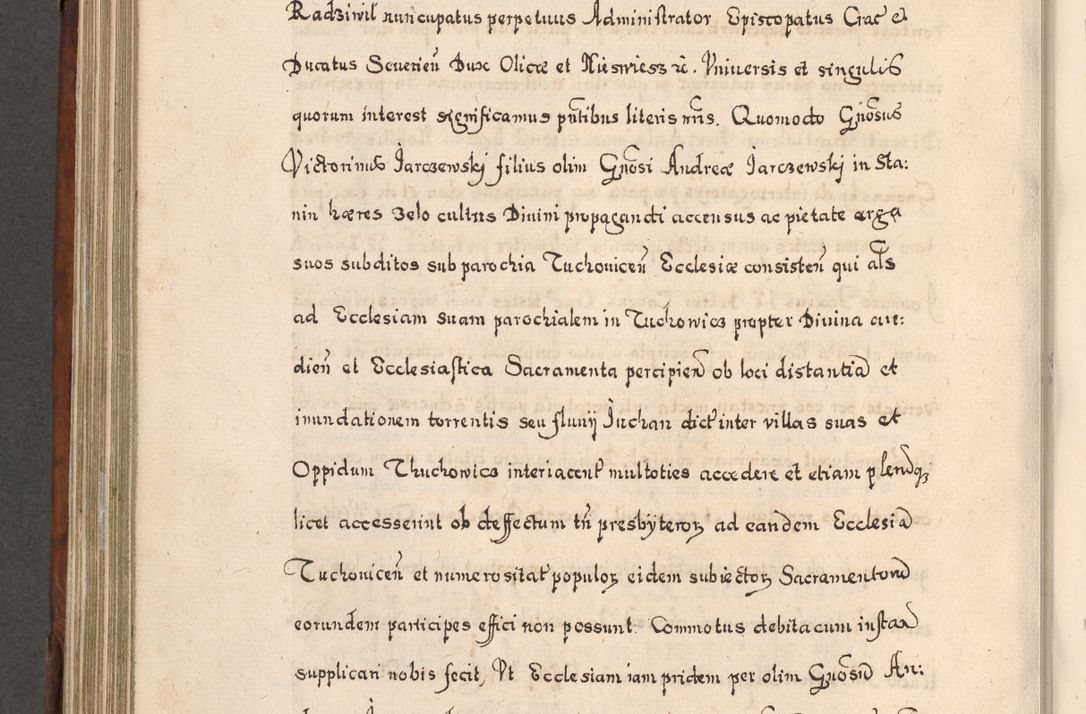 Radziwil nuncupatus perpetuus Administrator Episcopatus Crac et
Ducatus Seuerieñ Dux Olicæ et Nieswiess rc. Vniuersis et singulis
quorum interest significamus pñtibus literis nris. Quomodo Gñosus
Victorinus Jarczewskj filius olim Gñosi Andreæ Jarczewskj in Sta:
nin hæres zelo cultus Diuini propagandi accensus ac pietate erga
suos subditos sub parochia Tuchouiceñ Ecclesiæ consisteñ qui als
ad Ecclesiam suam parochialem in Tuchowicz propter Diuina au:
dieñ et Ecclesiastica Sacramenta percipieñ ob loci distantiã et
inundationem torrentis seu fluuij Juchan dict inter villas suas et
Oppidum Thuchowicz interiacent multoties accedere et etiam plerũq
licet accesserint ob deffectum tñ presbyteroꝝ ad eandem Ecclesiã
Tuchouiceñ et numerositat populoꝝ eidem subiectoꝝ Sacramentorũ
eorundem participes effici non possunt. Commotus debita cum instañ
supplicari nobis fecit, Vt Ecclesiam iam pridem per olim Gñosũ An: